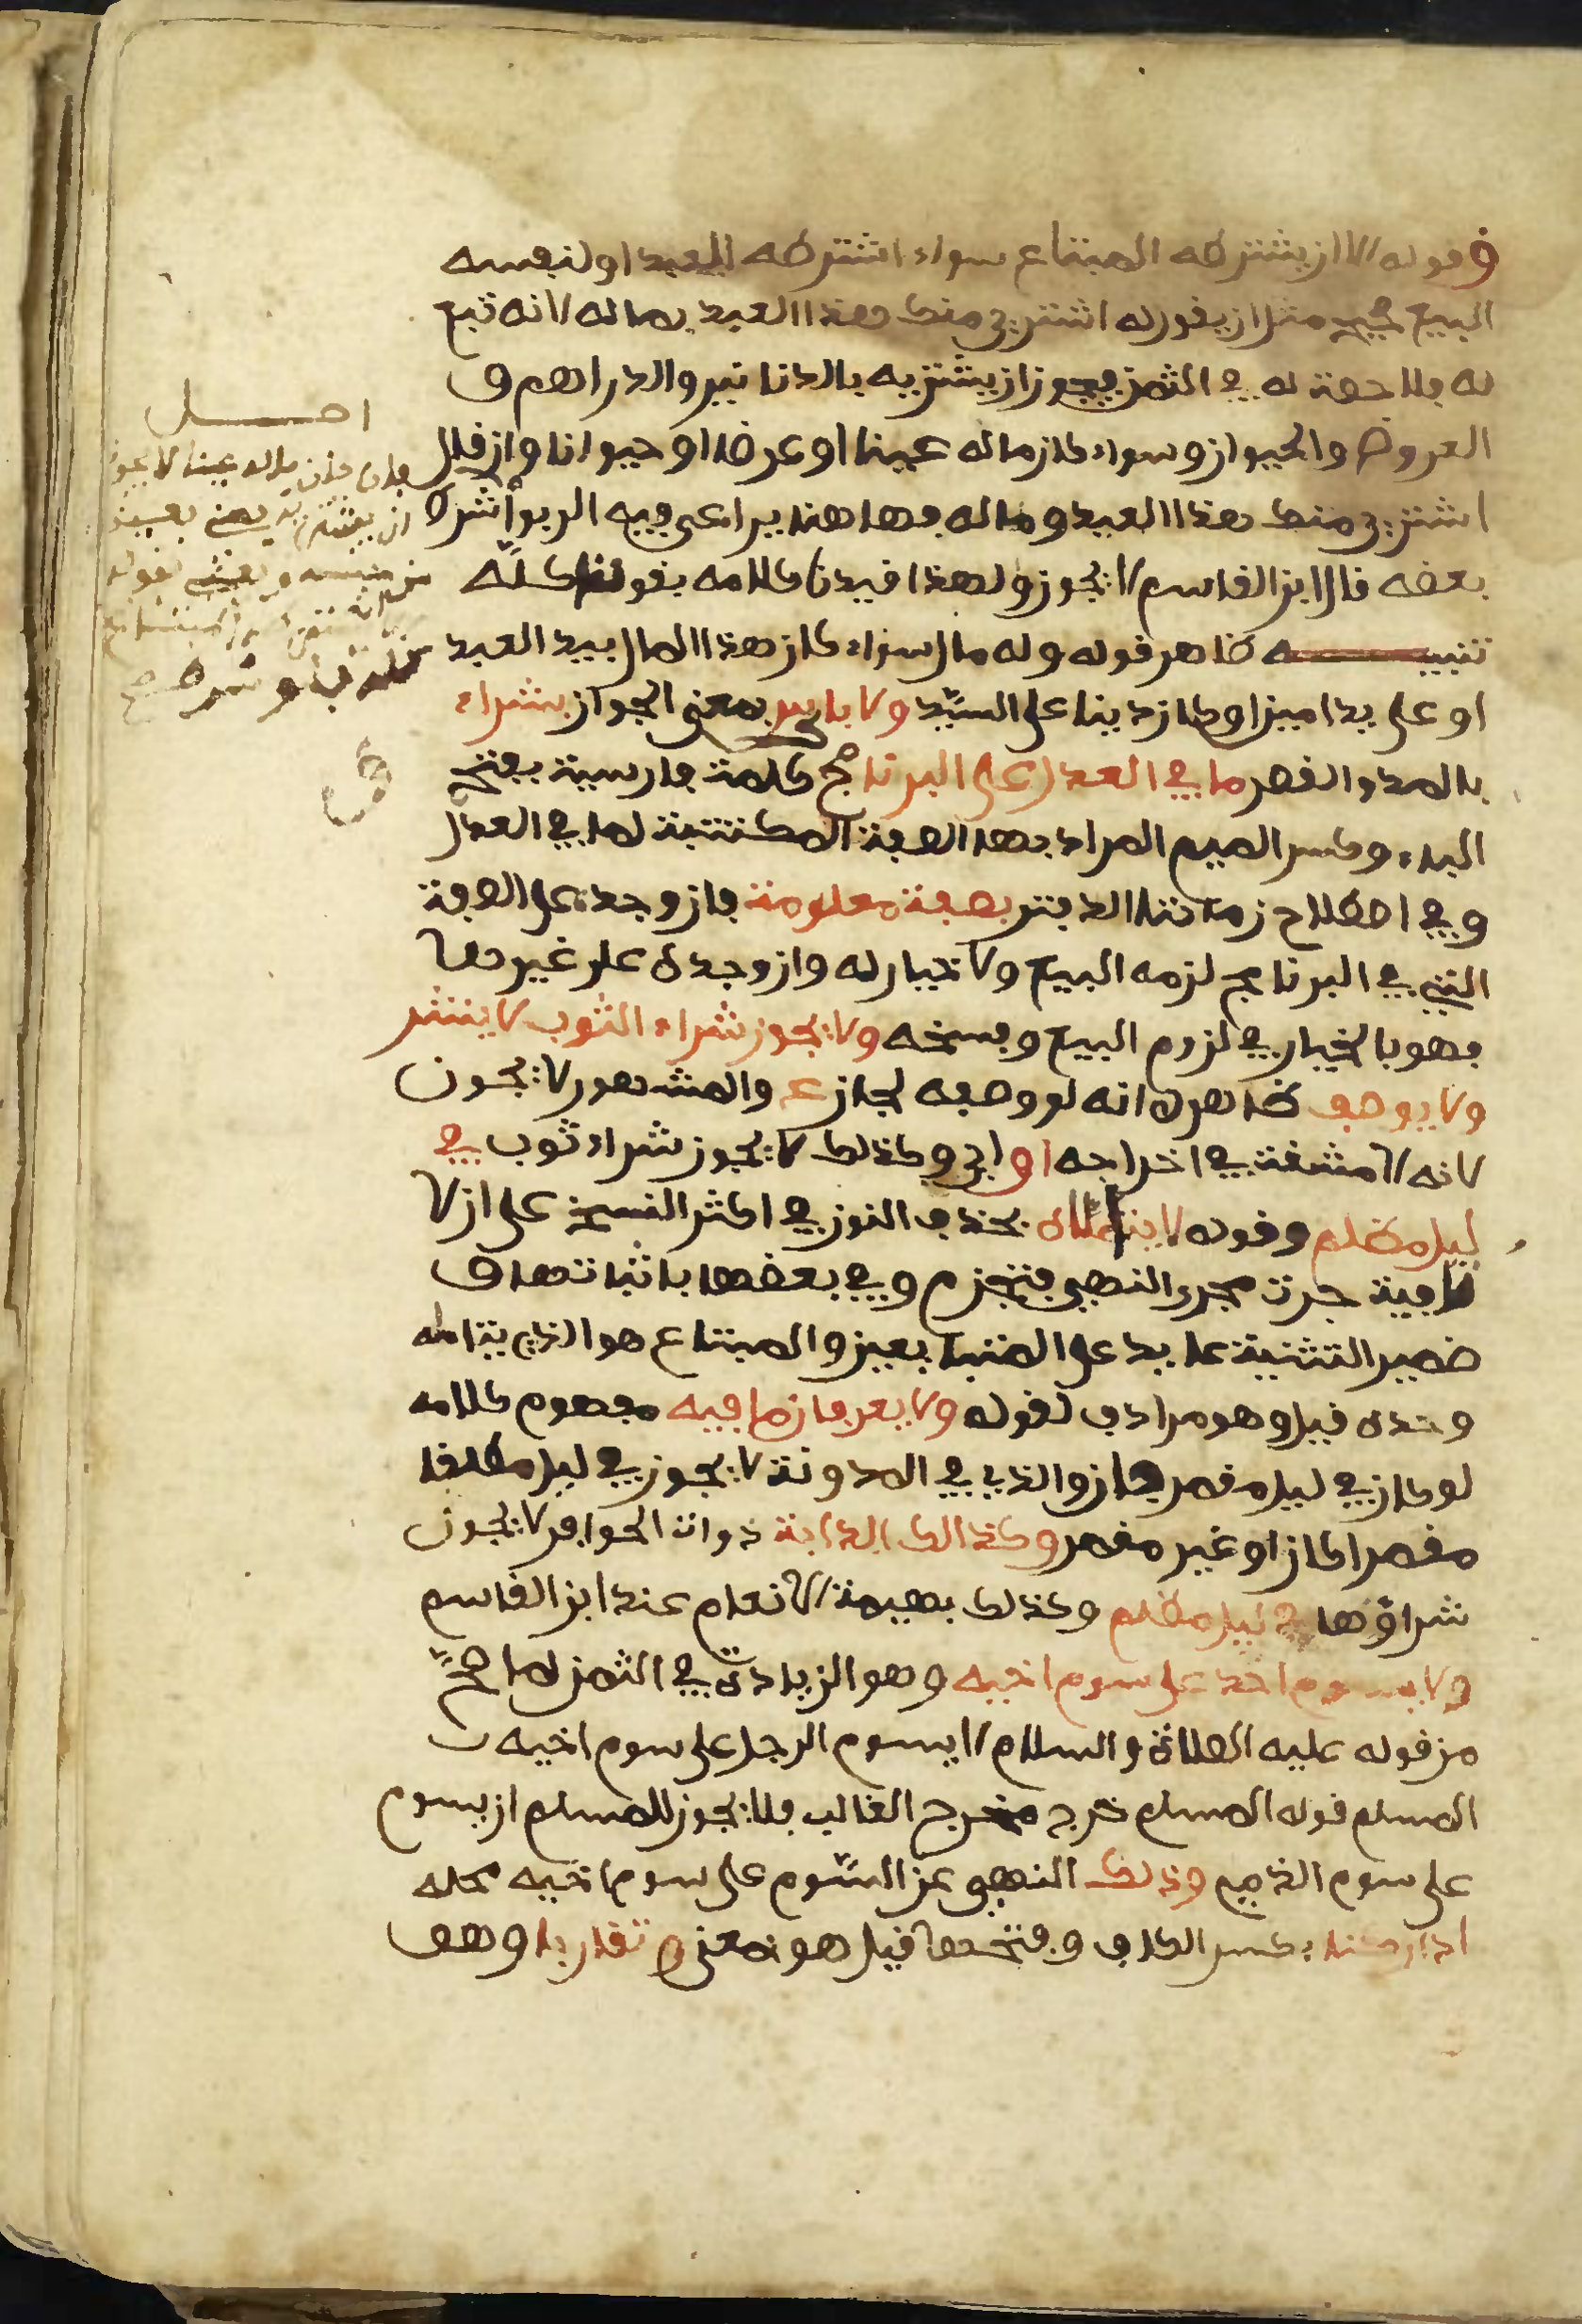 وقوله الا ان يشترطه المبتاع سواء اشترطه للعبد او لنفسه
البيع صحيح مثل ان يقول له اشتري منك هذا العبد بماله لانه تبع
له فلا حصة له في الثمن فيجوز ان يشتريه بالدنانير والدراهم و
العروض والحيوان وسواء كان ماله عينا او عرضا او حيوانا وان قال
اشتري منك هذا العبد وماله فها هنا يراعى فيه الربوا اشترا
بعضه قال ابن القاسم لا يجوز ولهذا قيدنا كلامه بقولنا كله
تنبيه ظاهر قوله وله مال سواء كان هذا المال بيد العبد
او على يد امين او كان دينا على السيد ولا باس بمعنى الجواز بشراء
بالمد والقصر ما في العدل على البرنامج كلمة فارسية بفتح
الباء وكسر الميم المراد بها الصفة المكتتبة لما في العدل
وفي اصطلاح زمتنا الدفتر بصفة معلومة فان وجده على الصفة
التي في البرنامج لزمه البيع ولا خيار له وان وجده على غيرها
فهو بالخيار في لزوم البيع وفسخه ولا يجوز شراء الثوب لا ينشر
ولا يوصف ظاهره انه لو وصفه لجاز ع والمشهور لا يجوز
لانه لا مشقة في اخراجه او اي وكذلك لا يجوز شراء ثوب في
ليل مظلم وقوله لا يتاملاه بحذف النون في اكثر النسخ على ان لا
نافية جرت مجرى النهي فتجزم وفي بعضها باثباتها و
ضمير التثنية عايد على المتبايعين والمبتاع هو الذي يتامله
وحده قيل وهو مرادف لقوله ولا يعرفان ما فيه مفهوم كلامه
لو كان في ليل مقمر جاز والذي في المدونة لا يجوز في ليل مطلقا
مقمرا كان او غير مقمر وكذالك الدابة ذوات الحوافر لا يجوز
شراؤها في ليل مظلم وكذلك بهيمة الانعام عند ابن القاسم
ولا يسوم احد على سوم اخيه وهو الزيادة في الثمن لما صح
من قوله عليه الصلاة والسلام لا يسوم الرجل على سوم اخيه
المسلم قوله المسلم خرج مخرج الغالب فلا يجوز للمسلم ان يسوم
على سوم الذمي وذلك النهي عن السوم على سوم اخيه محله
اذا ركنا بكسر الكاف وفتحها قيل هو بمعنى و تقاربا وهو
اصل
فان كان ماله عينا لا يجوز
ان يشتريه بعين
من جنسه